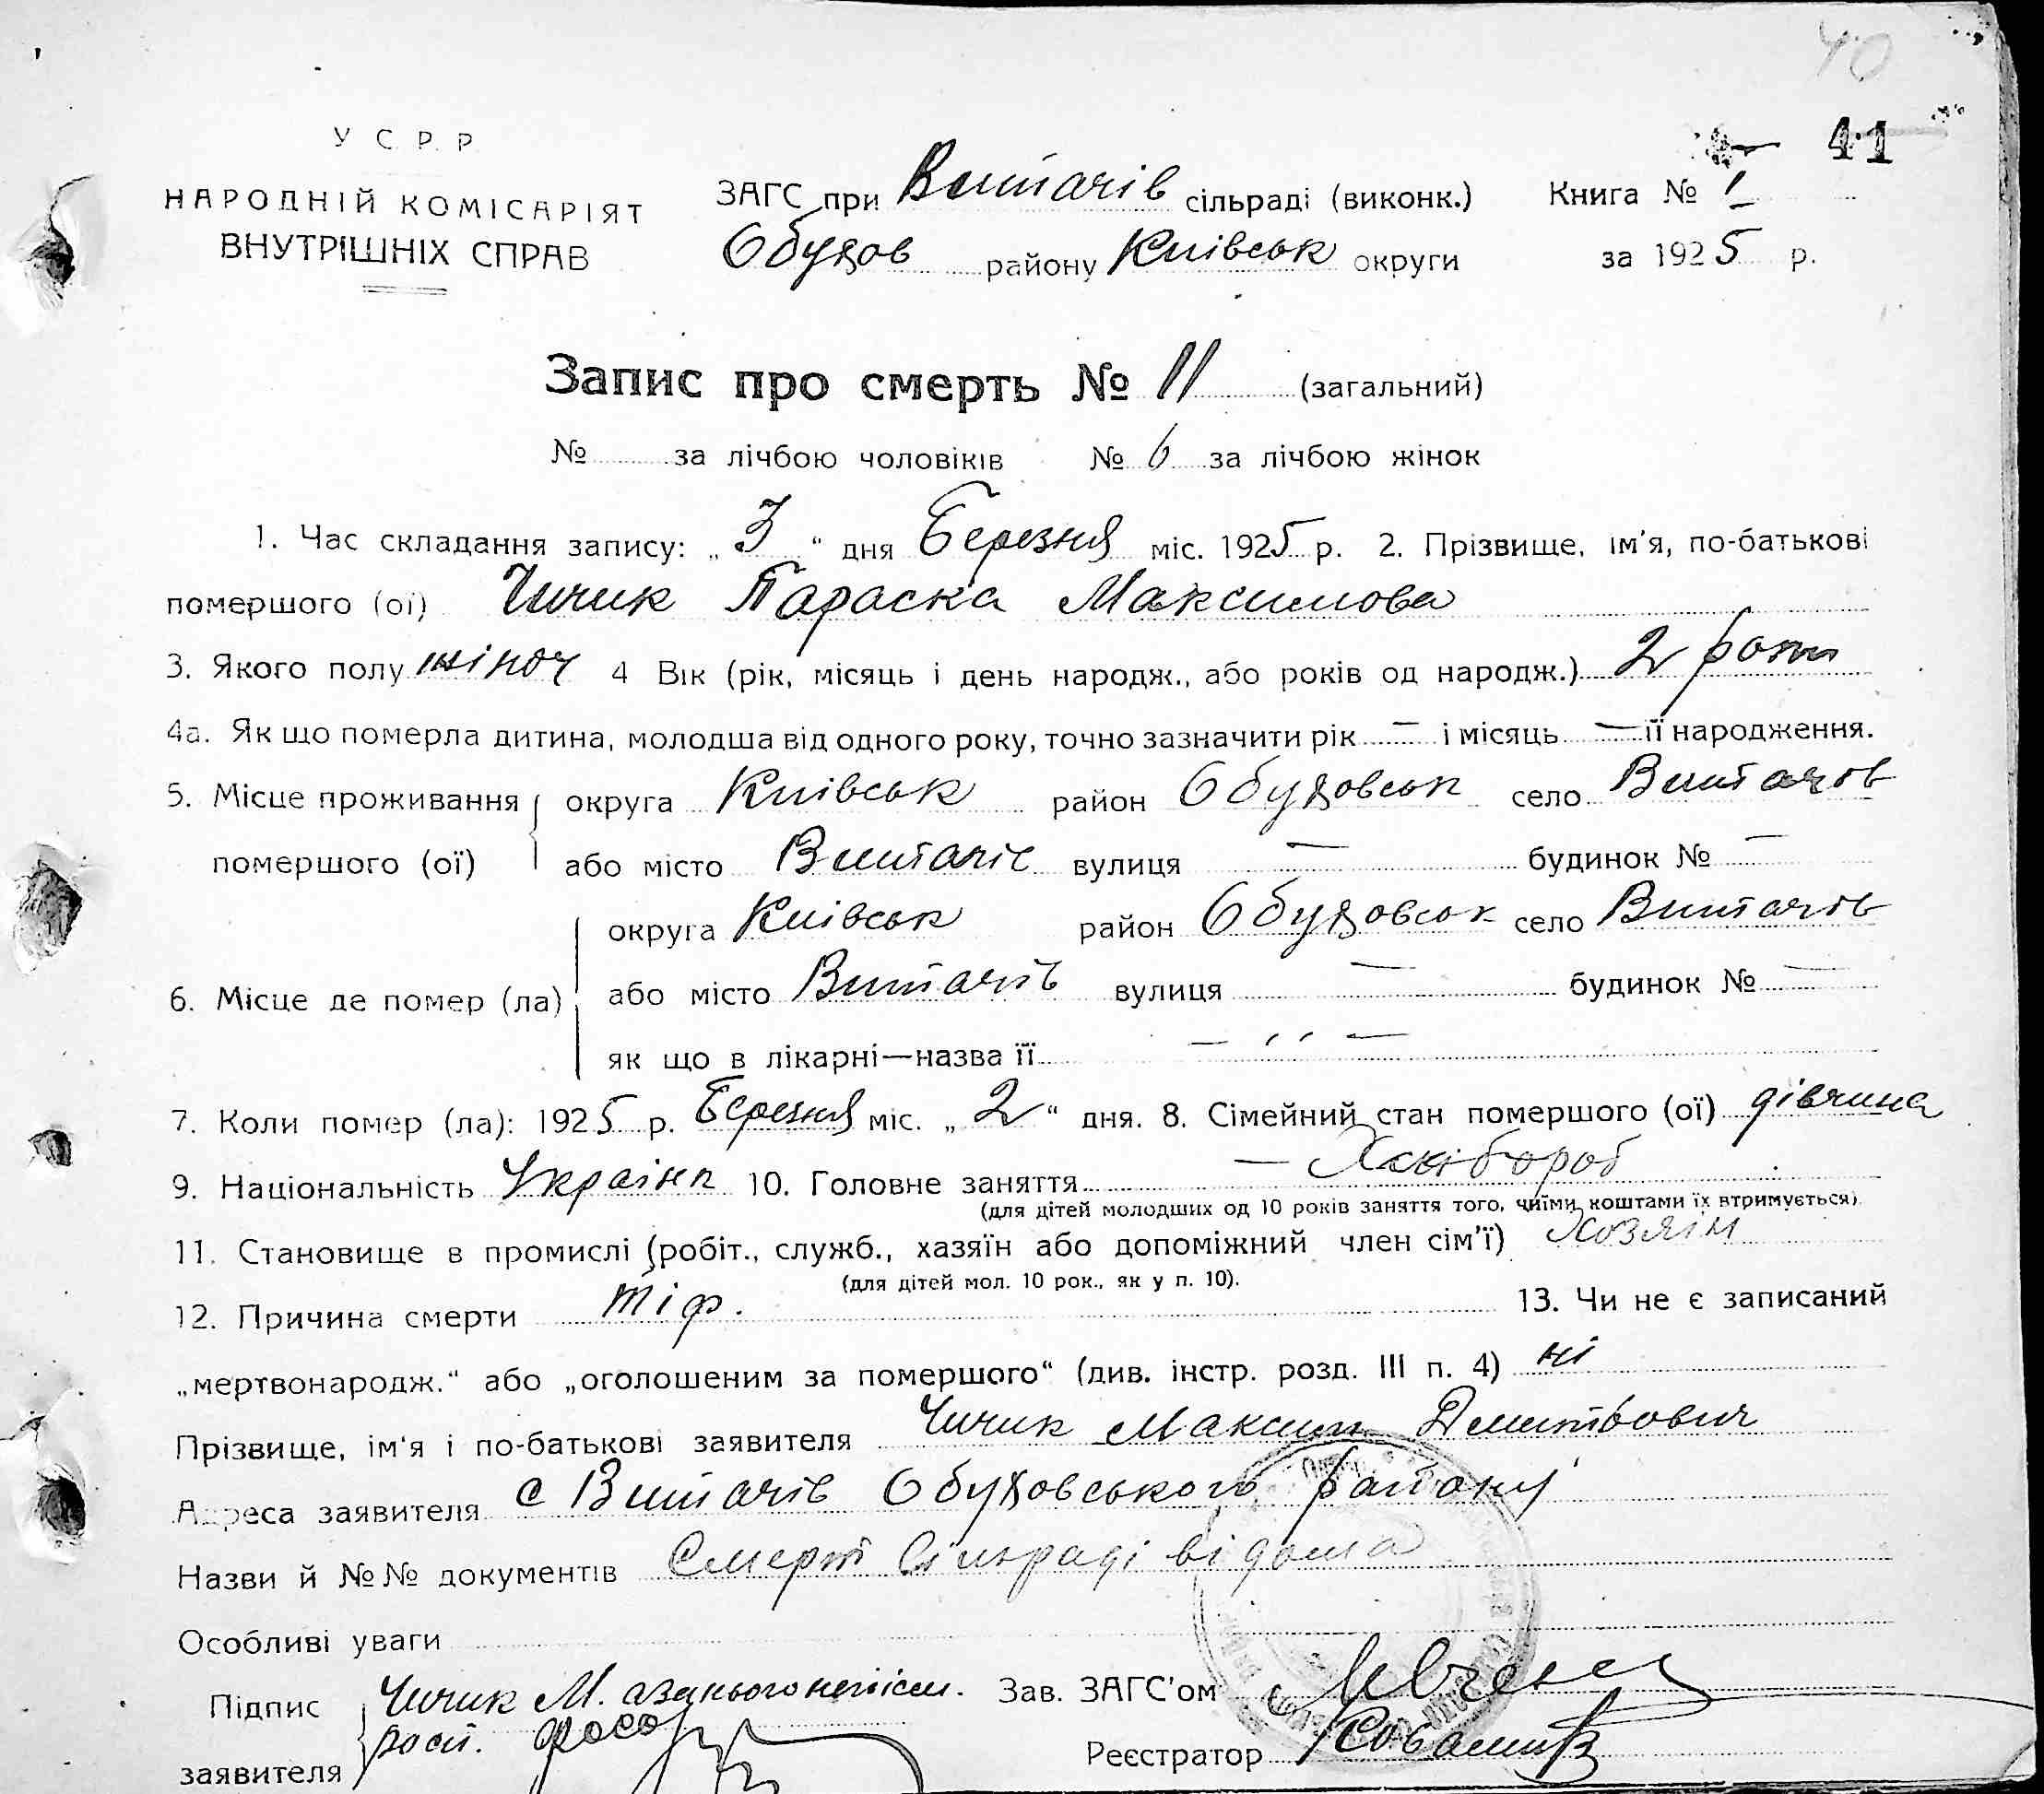 40
41
У С Р Р
НАРОДНІЙ КОМІСАРІЯТ
ВНУТРІШНІХ СПРАВ
ЗАГС при Витачів сільраді (виконк.) Книга № 1
Обухов району Київськ округи за 1925 р.
Запис про смерть № 11 (загальний)
№ за лічбою чоловіків № 6 за лічбою жінок
1. Час складання запису: „ 3 “ дня Березня міс. 1925 р. 2. Прізвище, ім'я, по-батькові
помершого (ої) Чичик Параска Максимова
3. Якого полу жіноч 4 Вік (рік, місяць і день народж., або років од народж.) 2 роки
4а. Як що померла дитина, молодша від одного року, точно зазначити рік — і місяць — її народження.
5. Місце проживання помершого (ої) округа Київськ район Обуховськ село Витачів
або місто Витачів вулиця — будинок № —
6. Місце де помер (ла) округа Київськ район Обуховськ село Витачів
або місто Витачів вулиця — будинок № —
як що в лікарні—назва її — ,, —
7. Коли помер (ла): 1925 р. Березня міс. „ 2 “ дня. 8. Сімейний стан помершого (ої) дівчина
9. Національність Україн 10. Головне заняття — Хлібороб
(для дітей молодших од 10 років заняття того, чиїми коштами їх втримується)
11. Становище в промислі (робіт., служб., хазяїн або допоміжний член сім'ї) Хозяін
(для дітей мол. 10 рок., як у п. 10).
12. Причина смерти тіф. 13. Чи не є записаний
„мертвонародж.“ або „оголошеним за помершого“ (див. інстр. розд. III п. 4) ні
Прізвище, ім'я і по-батькові заявителя Чичик Максим Дмитрович
Адреса заявителя с Витачів Обуховського району
Назви й №№ документів Смерт сільраді відома
Особливі уваги
Підпис заявителя Чичик М. а за нього непісм.
розп.
Зав. ЗАГС'ом
Реєстратор